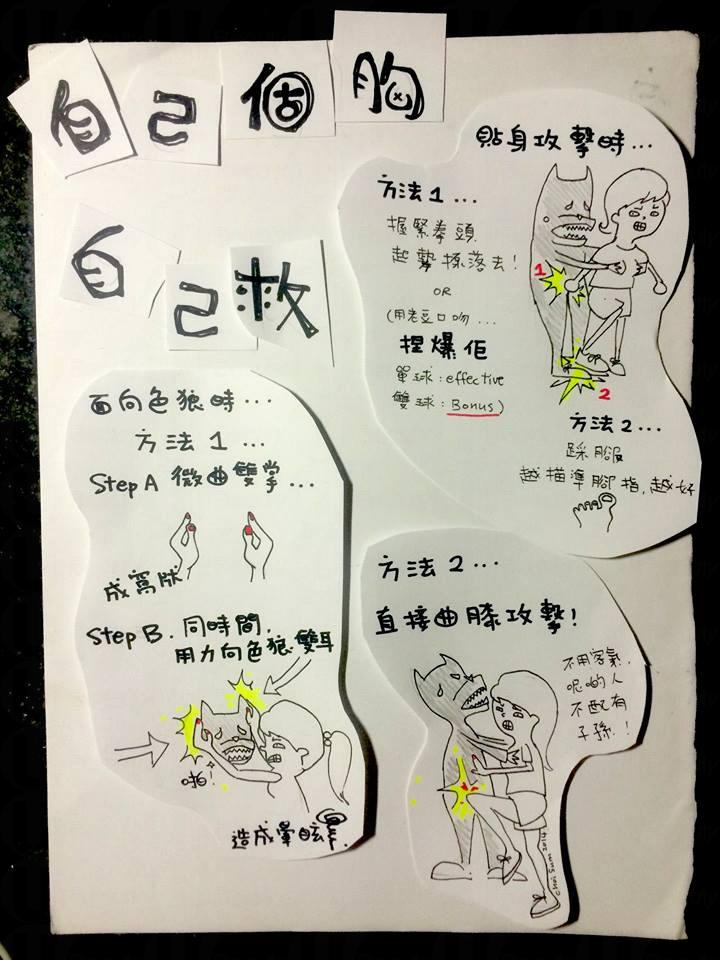 自己個胸
自己救
貼身攻擊時...
方法1...
握緊拳頭
起勢揼落去!
OR
(用老豆口吻...
捏爆佢
單球:effective
雙球:Bonus)
1
2
方法2...
踩腳
越描準腳指,越好
面向色狼時...
方法1...
Step A 微曲雙掌...
成窩狀
Step B.同時間,
用力向色狼雙耳
啪!
造成暈眩
方法2...
直接曲膝攻擊!
不用客氣,
呢啲人
不配有
子孫!
choi sum 2014